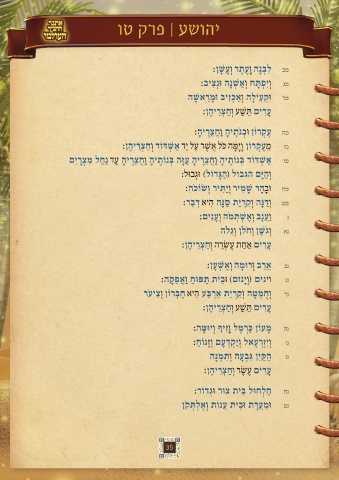 יהושע | פרק טו
מב לִבְנָה וָעֶתֶר וְעָשָׁן:
מג וְיִפְתָּח וְאַשְׁנָה וּנְצִיב:
מד וּקְעִילָה וְאַכְזִיב וּמָרֵאשָׁה
עָרִים תֵּשַׁע וְחַצְרֵיהֶן:
מה עֶקְרוֹן וּבְנֹתֶיהָ וַחֲצֵרֶיהָ:
מו מֵעֶקְרוֹן וָיָמָּה כֹּל אֲשֶׁר עַל יַד אַשְׁדּוֹד וְחַצְרֵיהֶן:
מז אַשְׁדּוֹד בְּנוֹתֶיהָ וַחֲצֵרֶיהָ עַזָּה בְּנוֹתֶיהָ וַחֲצֵרֶיהָ עַד נַחַל מִצְרָיִם
וְהַיָּם הגבול (הַגָּדוֹל) וּגְבוּל:
מח וּבָהָר שָׁמִיר וְיַתִּיר וְשׂוֹכֹה:
מט וְדַנָּה וְקִרְיַת סַנָּה הִיא דְבִר:
נ וַעֲנָב וְאֶשְׁתְּמֹה וְעָנִים:
נא וְגֹשֶׁן וְחֹלֹן וְגִלֹה
עָרִים אַחַת עֶשְׂרֵה וְחַצְרֵיהֶן:
נב אֲרַב וְרוּמָה וְאֶשְׁעָן:
נג וינים (וְיָנוּם) וּבֵית תַּפּוּחַ וַאֲפֵקָה:
נד וְחֻמְטָה וְקִרְיַת אַרְבַּע הִיא חֶבְרוֹן וְצִיעֹר
עָרִים תֵּשַׁע וְחַצְרֵיהֶן:
נה מָעוֹן כַּרְמֶל וָזִיף וְיוּטָּה:
נו וְיִזְרְעֶאל וְיָקְדְעָם וְזָנוֹחַ:
נז הַקַּיִן גִּבְעָה וְתִמְנָה
עָרִים עֶשֶׂר וְחַצְרֵיהֶן:
נח חַלְחוּל בֵּית צוּר וּגְדוֹר:
נט וּמַעֲרָת וּבֵית עֲנוֹת וְאֶלְתְּקֹן
35